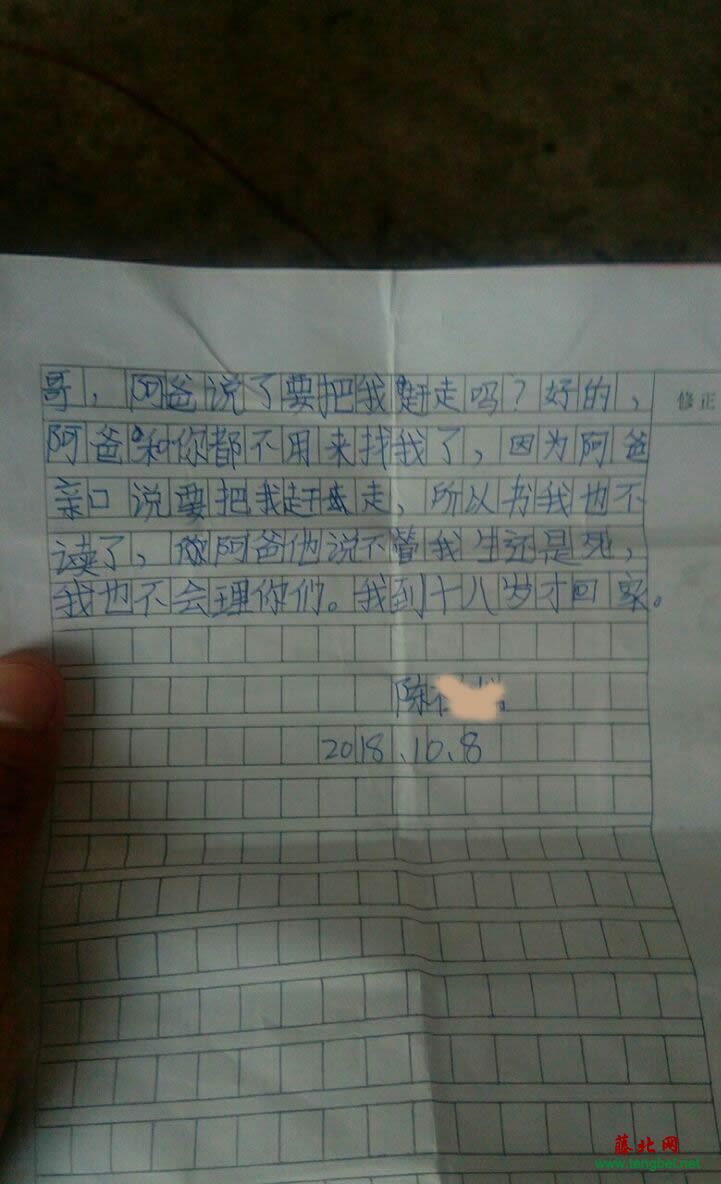 哥，阿爸说了要把我赶走吗？好的，
修正
阿爸和你都不用来找我了，因为阿爸
亲口说要把我赶走，所以书我也不
读了，阿爸他说不管我生还是死，
我也不会理你们。我到十八岁才回家。
陈
2018.10.8
藤北网
www.tengbei.net